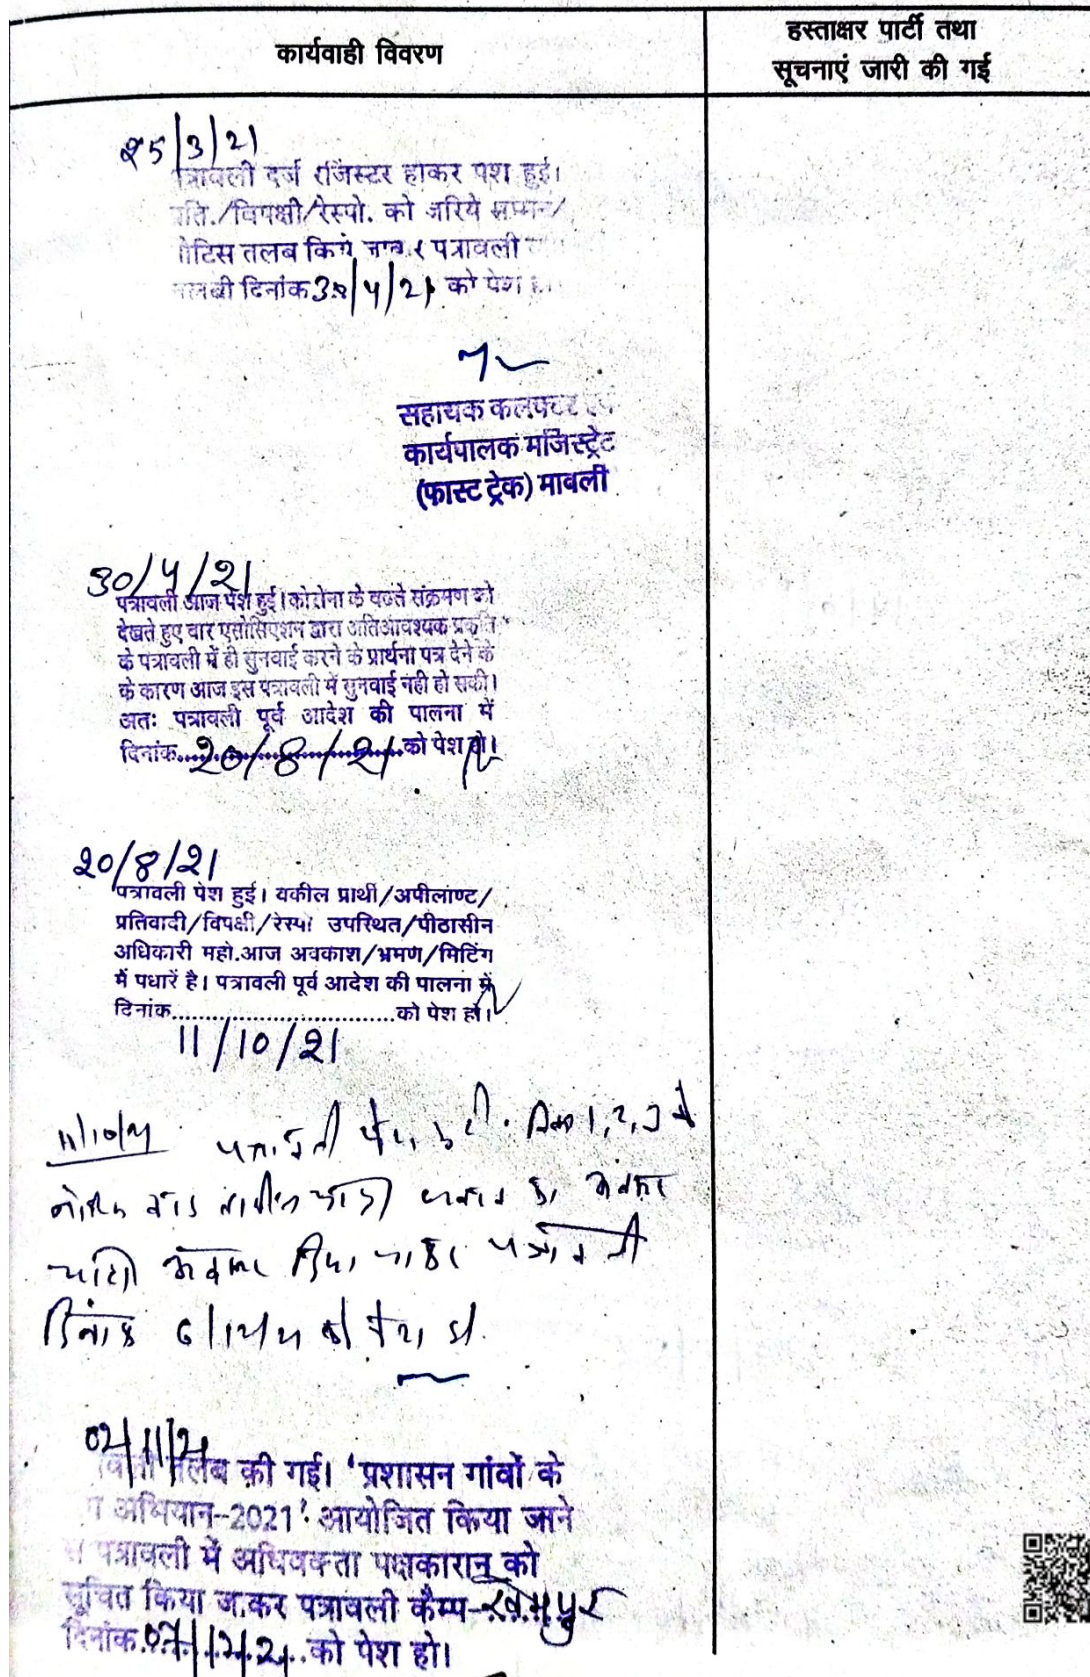 कार्यवाही विवरण
हस्ताक्षर पार्टी तथा
सूचनाएं जारी की गई
25/3/21
पत्रावली दर्ज रजिस्टर होकर पेश हुई।
प्रति./विपक्षी/रेस्पो. को जरिये सम्मन/
नोटिस तलब किये जाकर पत्रावली
तलबी दिनांक 30/4/21 को पेश
सहायक कलक्टर एवं
कार्यपालक मजिस्ट्रेट
(फास्ट ट्रेक) मावली
30/4/21
पत्रावली आज पेश हुई। कोरोना के बढते संक्रमण को
देखते हुए बार एसोसिएशन द्वारा अतिआवश्यक प्रकृति
के पत्रावली में ही सुनवाई करने के प्रार्थना पत्र देने के
के कारण आज इस पत्रावली में सुनवाई नही हो सकी।
अतः पत्रावली पूर्व आदेश की पालना में
दिनांक 20/8/21 को पेश हो।
20/8/21
पत्रावली पेश हुई। वकील प्रार्थी/अपीलाण्ट/
प्रतिवादी/विपक्षी/रेस्पो उपस्थित/पीठासीन
अधिकारी महो.आज अवकाश/भ्रमण/मिटिंग
में पधारें है। पत्रावली पूर्व आदेश की पालना में
दिनांक..............................को पेश हो।
11/10/21
11/10/21 पत्रावली पेश हुई। 1, 2, 3 के
पत्रावली
दिनांक को पेश हो
02/11/21
तलब की गई। 'प्रशासन गांवों के
अभियान-2021' आयोजित किया जाने
पत्रावली में अधिवक्ता पक्षकारान् को
सूचित किया जाकर पत्रावली कैम्प-
दिनांक 07/12/21 को पेश हो।